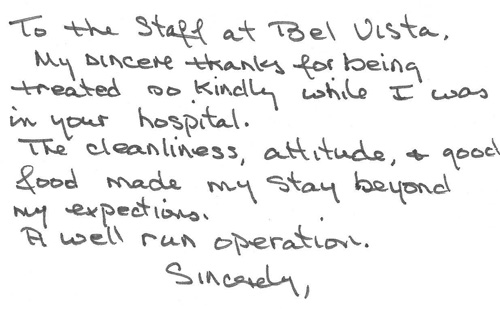 To the Staff at Bel Vista.
My sincere thanks for being
treated so kindly while I was
in your hospital.
The cleanliness, attitude, & good
food made my stay beyond
my expections.
A well run operation.
Sincerely,